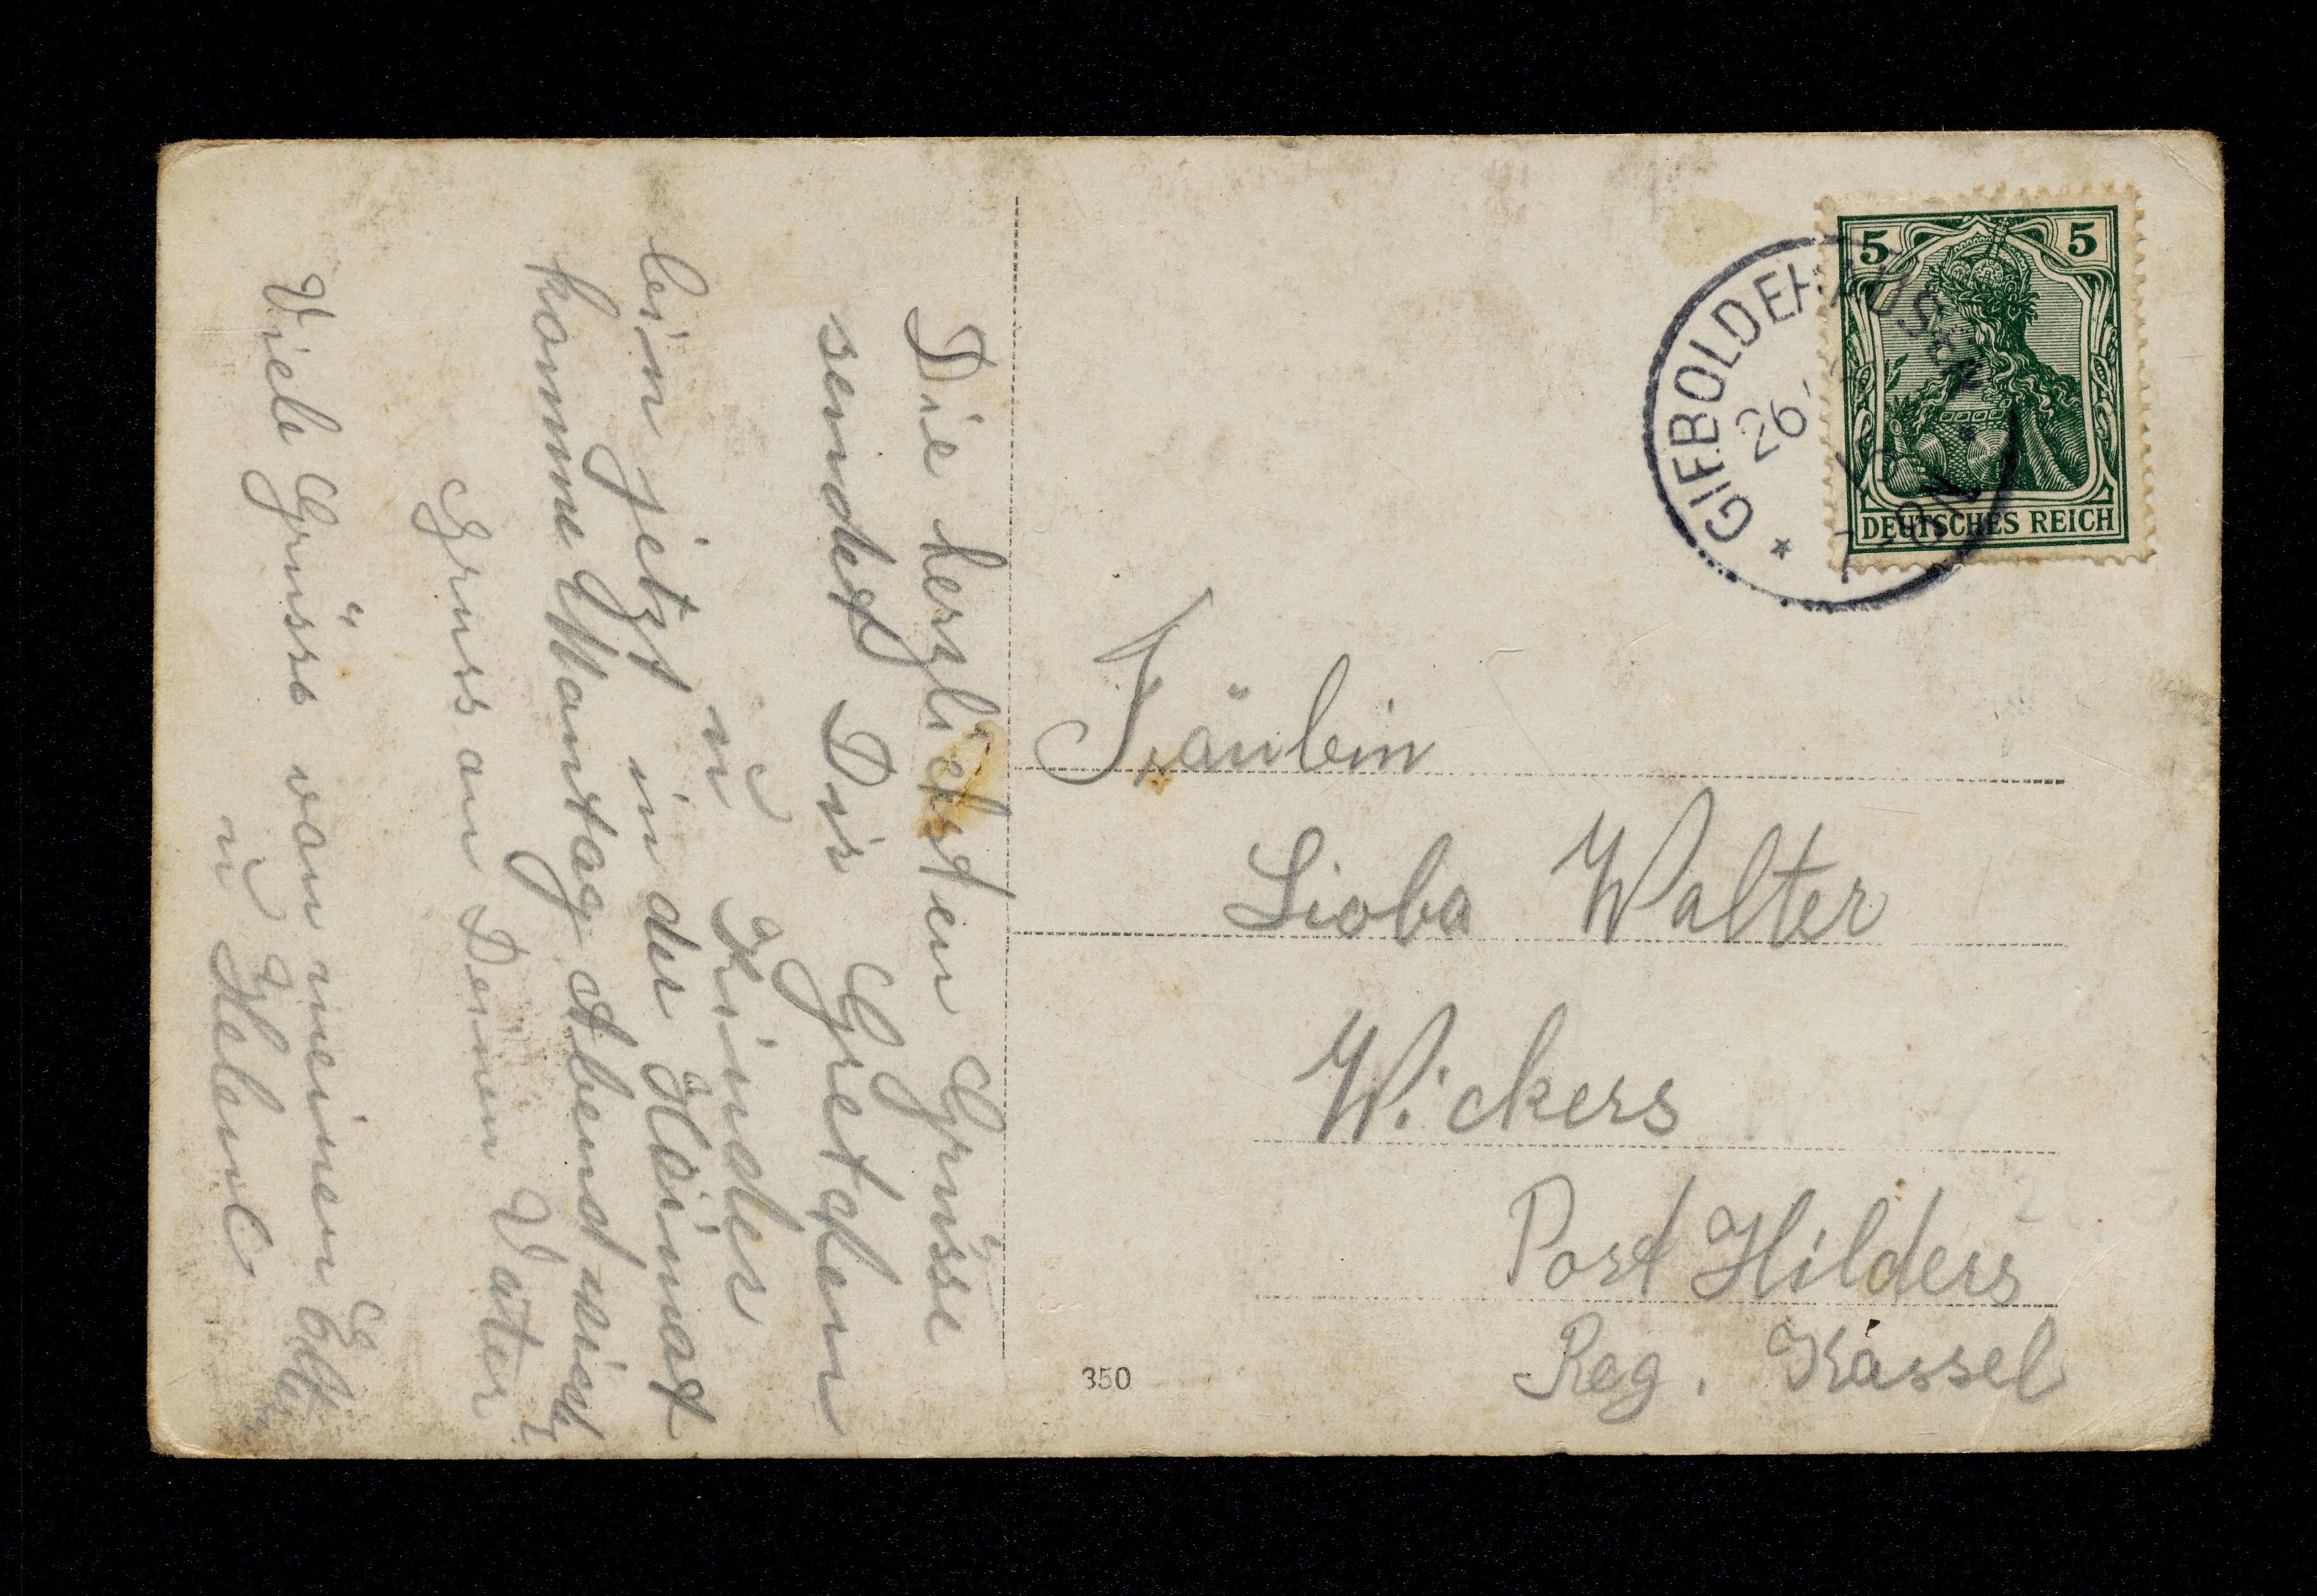 Die herzlichsten Grüsse
sendet Dir Gretchen
ü Kinder
bin jetzt in der Heimat
komme Mantag Abend wied
Gruss an Deinen Vater
Viele Grüsse von meinen Eltern
ü Helene
5 5
DEUTSCHES REICH
* GIEBOLDEHAUSEN *
26
7-8N
Fräulein
Lioba Walter
Wickers
Post Hilders
Reg. Kassel
350